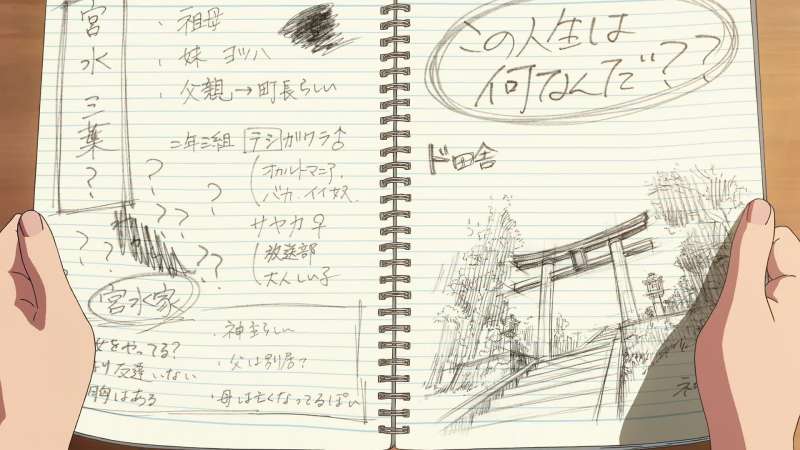 宮水三葉?
・祖母
・妹 ヨツハ
・父親→町長らしい
二年三組 テシガワラ♂
オカルトマニア.
バカ.イイ奴.
サヤカ♀
放送部
大人しい子
? ? ? ?
? ? ??
宮水家
女をやってる?
友達いない
胸はある
・神主らしい
・父は別居?
・母は亡くなってるぽい
この人生は
何なんだ??
ド田舎